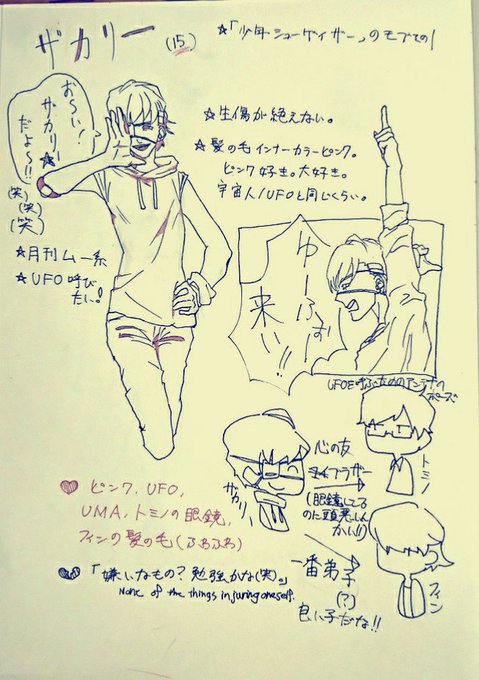 ザカリー (15)
☆「少年シューゲイザー」のモブその1
お〜い!
ザカリー
だよ〜!!
(笑)
(笑)
(笑)
☆生傷が絶えない。
☆髪の毛インナーカラーピンク。
ピンク好き。大好き。
宇宙人/UFOと同じくらい。
☆月刊ムー系
☆UFO呼び
たい。
ゆーふぉー
来い!!
UFOを呼ぶためのアンテナの
ポーズ
ザカリー
心の友
(眼鏡してる
のに頭悪いん
かい!!)
トミノ
一番弟子
(?)
良い子だな!!
フィン
♡ピンク、UFO、
UMA、トミノの眼鏡、
フィンの髪の毛(ふわふわ)
「嫌いなもの?勉強かな(笑)。」
None of the things injuring oneself.